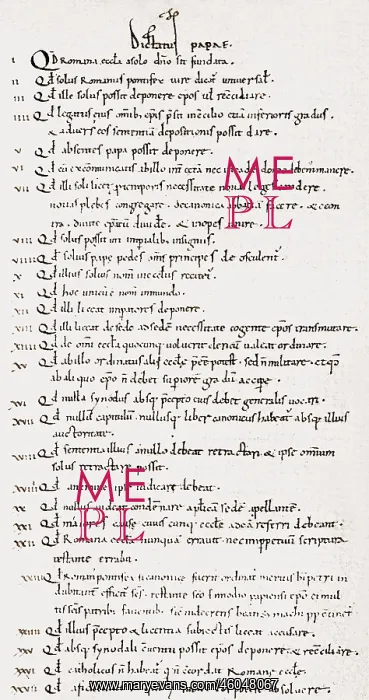 Dictatus papae.
I Qd Romana eccla a solo dno sit fundata.
II Qd solus Romanus pontifex iure dicat universal.
III Qd ille solus possit deponere epos vl recciliare.
IIII Qd legatus eius omnib epis psit in cclio etia inferioris gradus.
& advers eos sententia depositionis possit dare.
V Qd absentes papa possit deponere.
VI Qd cu excommunicatis ab illo int cetera nec
VII Qd illi soli licet p temporis necessitate novas leges condere.
novas plebes congregare. de canonica abbatia facere. & econ
tra. divite epatu divide. & inopes unire.
VIII Qd solus possit uti imperialib insigniis.
VIIII Qd solius pape pedes oms principes deosculent.
X Qd illius solius nom in ecclis recitet.
XI Qd hoc unicu e nom in mundo.
XII Qd illi liceat imperatores deponere.
XIII Qd illi liceat de sede ad sede necessitate cogente epos transmutare.
XIIII Qd de omi eccla quocunq voluerit clericu valeat ordinare.
XV Qd ab illo ordinatus alii eccle pee potest. sed n militare. et qd
ab aliquo epo n debet superiore gradu accipe.
XVI Qd nulla synodus absq pcepto eius debet generalis vocari.
XVII Qd nullu capitulu nullusq liber canonicus habeat absq illius
auctoritate.
XVIII Qd sententia illius a nullo debeat retractari & ipse omnium
solus retractare possit.
XVIIII Qd a nemine ipse iudicare debeat.
XX Qd nullus audeat condemnare apostolica sede apellante.
XXI Qd maiores cause cuiuscunq eccle ad ea referri debeant.
XXII Qd Romana eccla nunqua erravit nec inppetuu scriptura
testante errabit.
XXIII Qd Roman pontifex si canonice fuerit ordinat meritis b petri in
dubitant efficit scs. testante sco Ennodio papiensi epo ei mul
tis scis patrib faventib. sic in decretis beati Symachi pp continet.
XXIIII Qd illius pcepto & licentia subiectis liceat accusare.
XXV Qd absq synodali cventu possit epos deponere & recciliare.
XXVI Qd catholicus n habeat q n ccordat Romane eccle.
ME
PL
ME
PL
www.maryevans.com/46048067